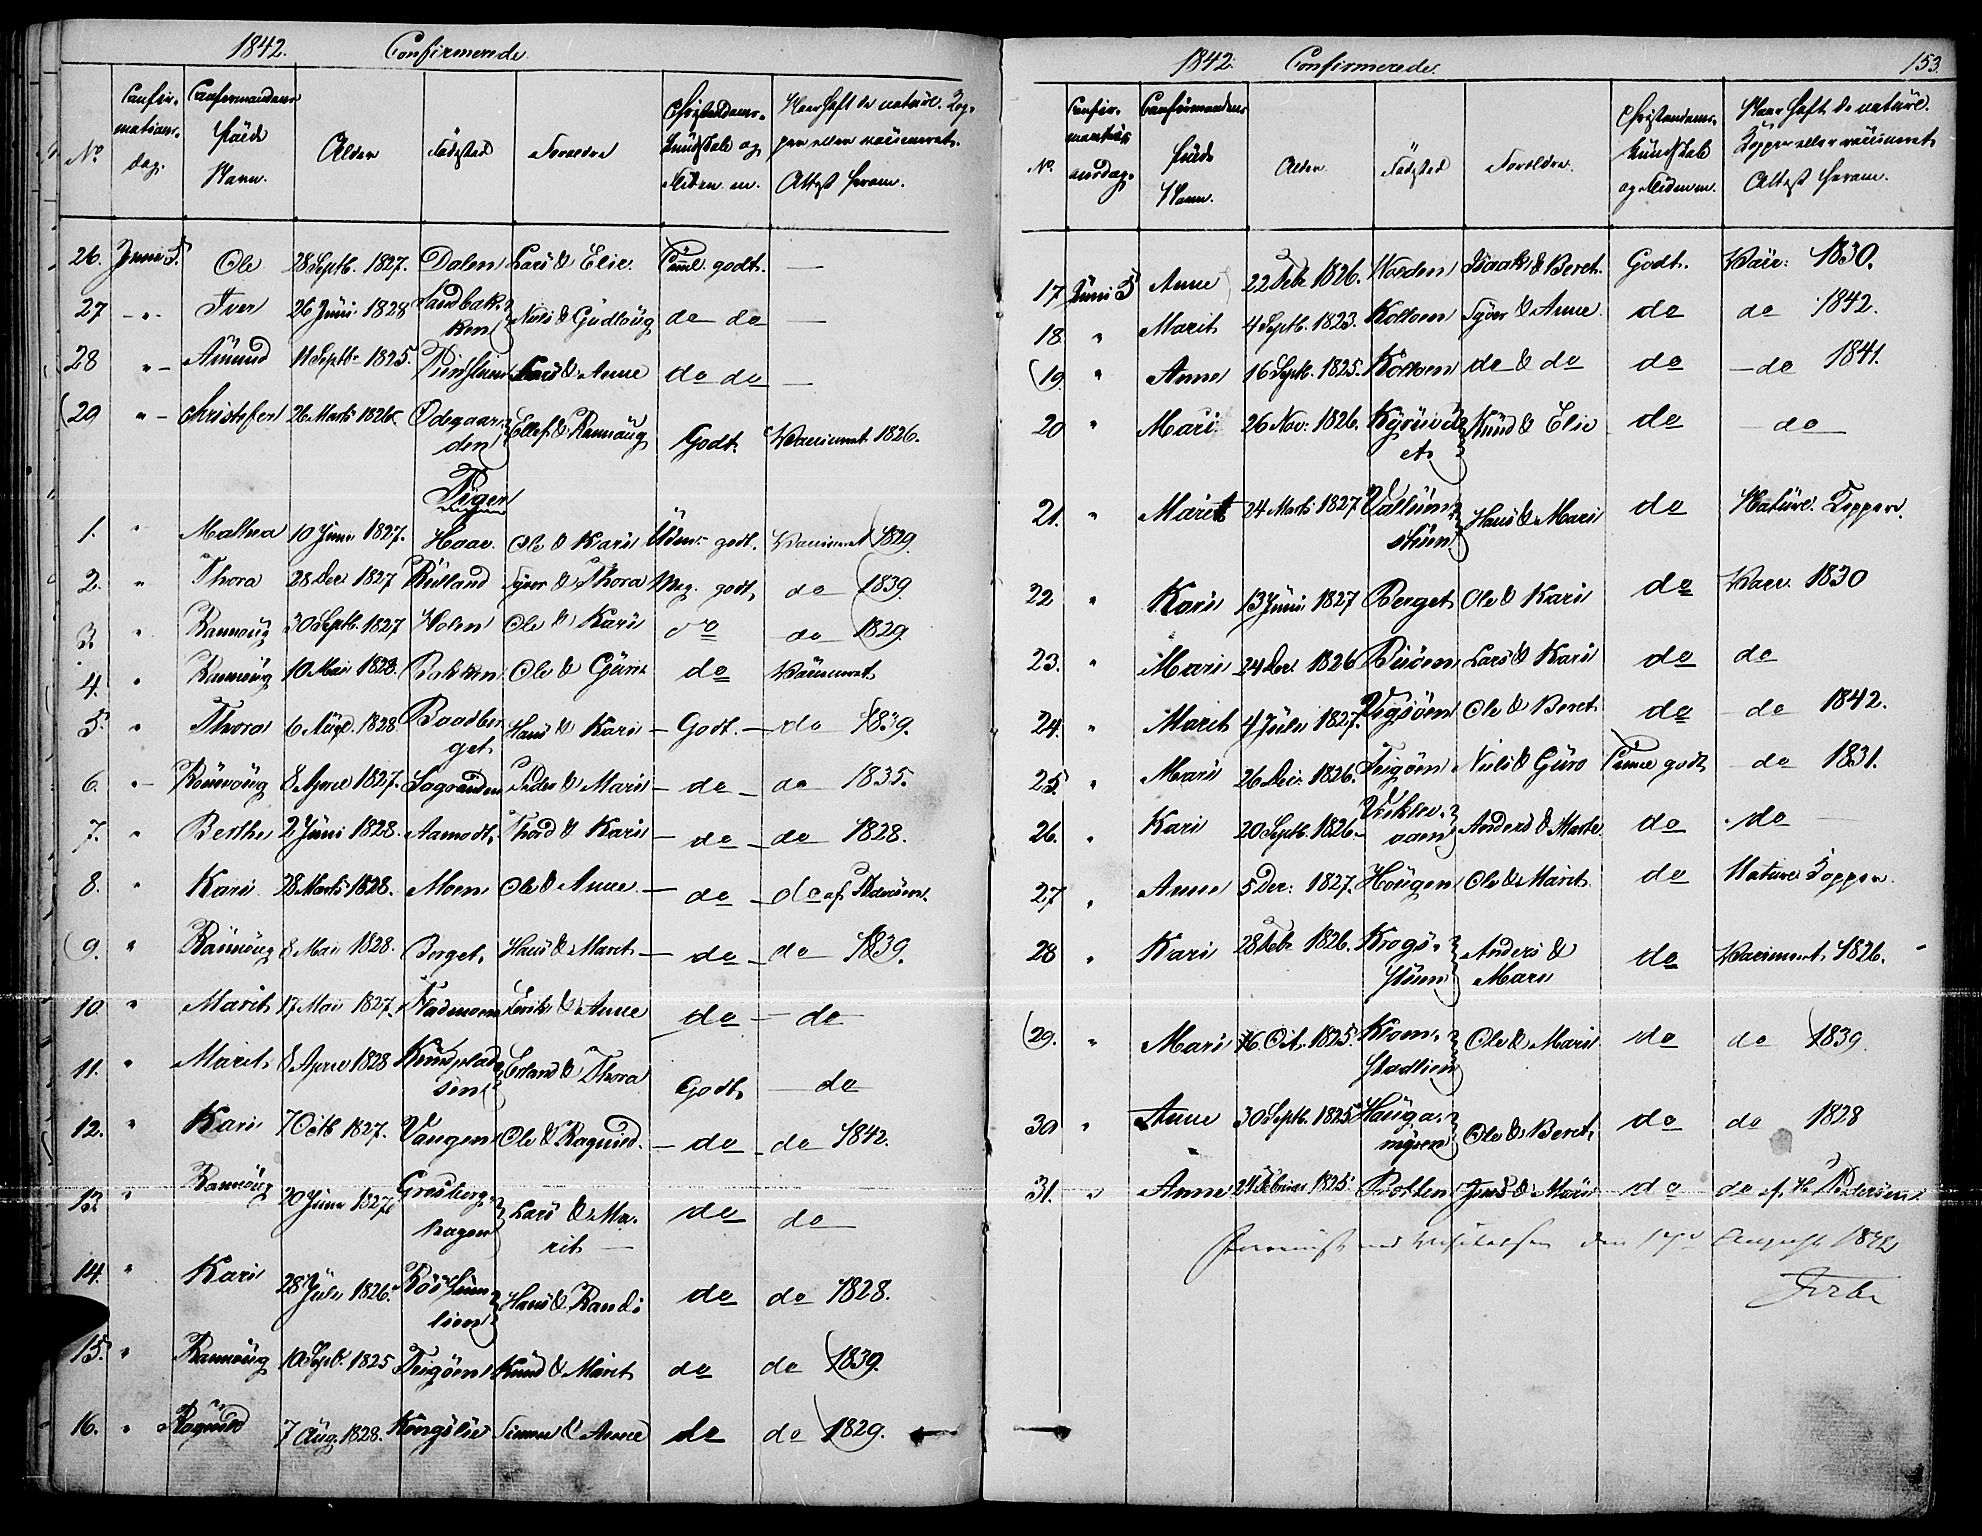 1842. Confirmerede
No. Confirmationsdag. Confirmandens fulde Navn. Alder Födested Foreldre Christendoms-kundskab og Flid m. m. Naar haft de naturl. Kopper eller vaccineret. Attest herom.
26. Junii 5. Ole 28 Septb. 1827. Dalen Lars & Elie. Tuul. godt. —
27 -"- Iver 26 Juni 1828 Sandbakken Niels & Gudloug do do —
28 " - Amund 11 Septbr 1825. Lars & Anne do do —
(29 " - Christofer 26 Marts 1826. Odegaarden Ellef & Rannoug Godt. Vaccinert 1826.
Piger
1. " Mathea 10 Juni 1827. Haae. Ole & Kari Uden. godt. Vaccineret 1829.
2. " Thora 28 Dec 1827 Rusland Syver & Thora Meg. godt, do 1839.
3 " Rannoug 30 Septb. 1827 Volen Ole & Kari do do 1829.
4. " Rannoug 10 Mai 1828. Bakken Ole & Guri do Vaccineret
5. " Thora 6 Aug. 1828 Baadberget Hans & Kari — Godt. — do 1839.
6. " - Rönnoug 8 April 1827. Sogranden Peder & Mari — do — do 1835.
7. " Berthe 2 Juni 1828. Aamodt. Thord & Kari — do — do 1828.
8. " Kari 28 Marts 1828. Moen Ole & Anne — do — do af Pedersen.
(9. " Rannoug 8 Mai 1828. Berget. Hans & Marit — do — do 1839.
10. " Marit 17 Mai 1827. Flademoen Erik & Anne do — do
11. " Marit 8 April 1828 Kundpladsen Erland & Thora Godt — do
12. " Kari 7 Octb 1827. Vangen Ole & Ragnild. — do — do 1842.
13. " Rannoug 20 Juni 1827 Grosberghagen Lars & Marit — do do
14. " Kari 28 Juli 1826. Röshiimlien Hans & Randi do do 1828.
15. " Rannoug 10 Septb. 1825 Teigöen Knud & Marit do do 1839.
16. " Ragnild 7 Aug. 1828. Kongslie Simen & Anne do do 1829.
1842. Confirmerede. 153.
No. Confirmationsdag. Confirmandens fulde Navn. Alder Födested Foreldre. Christendoms-kundskab og Flid m. m. Naar haft de naturl. Kopper eller vaccineret Attest herom.
17 Juni 5 Anne 22 Febr 1826. Norden Isaak & Beret. Godt. Vacc: 1830.
18. " Marit 4 Septb. 1823. Kolloen Syver & Anne. do do 1842.
(19. " Anne 16 Septb. 1825. Kolloen do & do do — do 1841.
20 " Mari 26 Nov: 1826. Kyrüvdet. Knud & Elie do — do —
21. " Marit 24 Marts 1827. Hans & Mari do Naturl. Kopper.
22 " Kari 13 Juni 1827 Berget Ole & Kari do Vacc. 1830
23. " Mari 24 Dec. 1826 Lars & Kari do do
24. " Marit 4 Juli 1827. Vigsöen Ole & Beret do — do 1842.
25. " Mari 26 Dec. 1826. Teigöen Niels & Guro godt — do 1831.
26. " Kari 20 Septb. 1826. Anders & Marte. do — do —
27 " Anne 5 Dec: 1827. Hougen Ole & Marit do Naturl. Kopper.
28 " Kari 28 Febr 1826. Krogshiim Anders & Mari do Vaccineret 1826.
(29. " Mari 16 Oct. 1825. Ole & Mari do do 1839
30 " Anne 30 Septb. 1825 Haugamyren Ole & Beret do do 1828
31. " Anne 24 Februar 1825. Bollen Jens & Mari do do af H. Pedersen.
den 17d August 1842